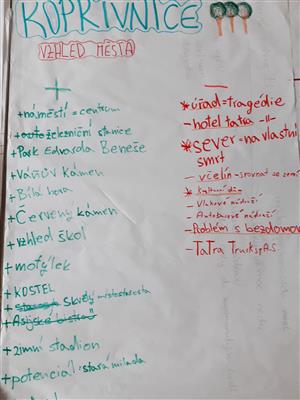 KOPŘIVNICE
VZHLED MĚSTA
+
+náměstí = centrum
+auto železniční stanice
+Park Edvarda Beneše
+Váňův kámen
+Bílá hora
+Červený kámen
+vzhled škol
+motýlek
+KOSTEL
+starosta Skvělý místostarosta
+Asijské bistro
+zimní stadion
+potenciál: stará
—
*úřad=tragédie
-hotel tatra -||-
*sever=na vlastní
smrt
-včelín - srovnat se zemí
*kulturní dům
-Vlakové nádraží
-Autobusové nádraží
-Problém s bezdomov
-Tatra Trucks a.s.